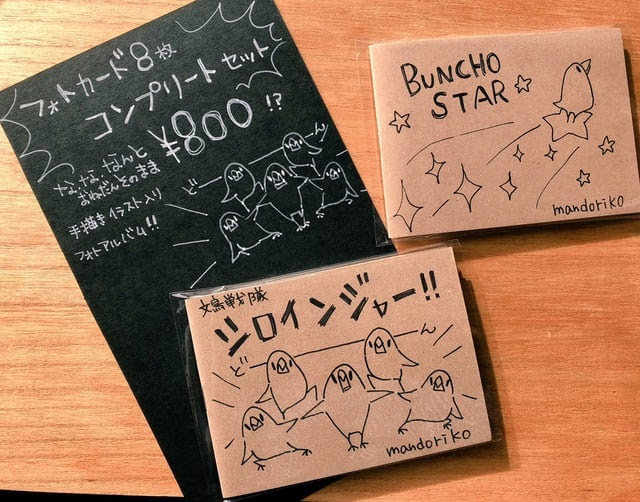 フォトカード8枚
コンプリートセット
¥800!?
な、な、なんと
おねだんそのまま
手描きイラスト入り
フォトアルバム!!
ど
ん
BUNCHO
STAR
mandoriko
文鳥戦隊
シロインジャー!!
ど
ん
mandoriko